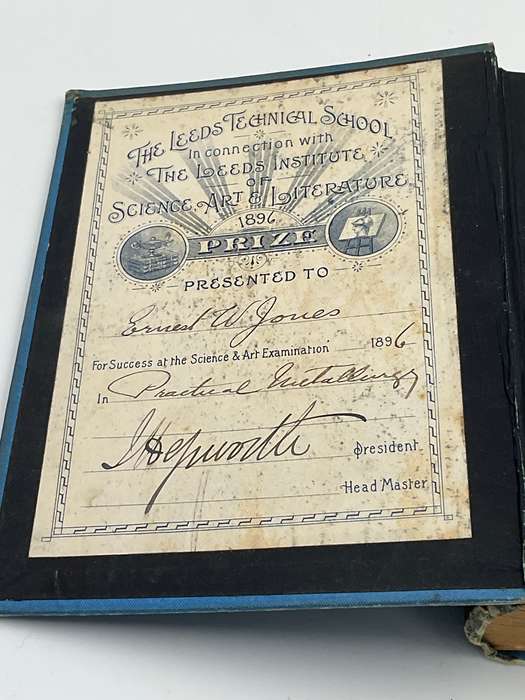 THE LEEDS TECHNICAL SCHOOL
In connection with
THE LEEDS INSTITUTE
OF
SCIENCE, ART & LITERATURE
1896
PRIZE
PRESENTED TO
Ernest W. Jones
For Success at the Science & Art Examination 1896
In Practical Metallurgy
J Hepworth President
Head Master